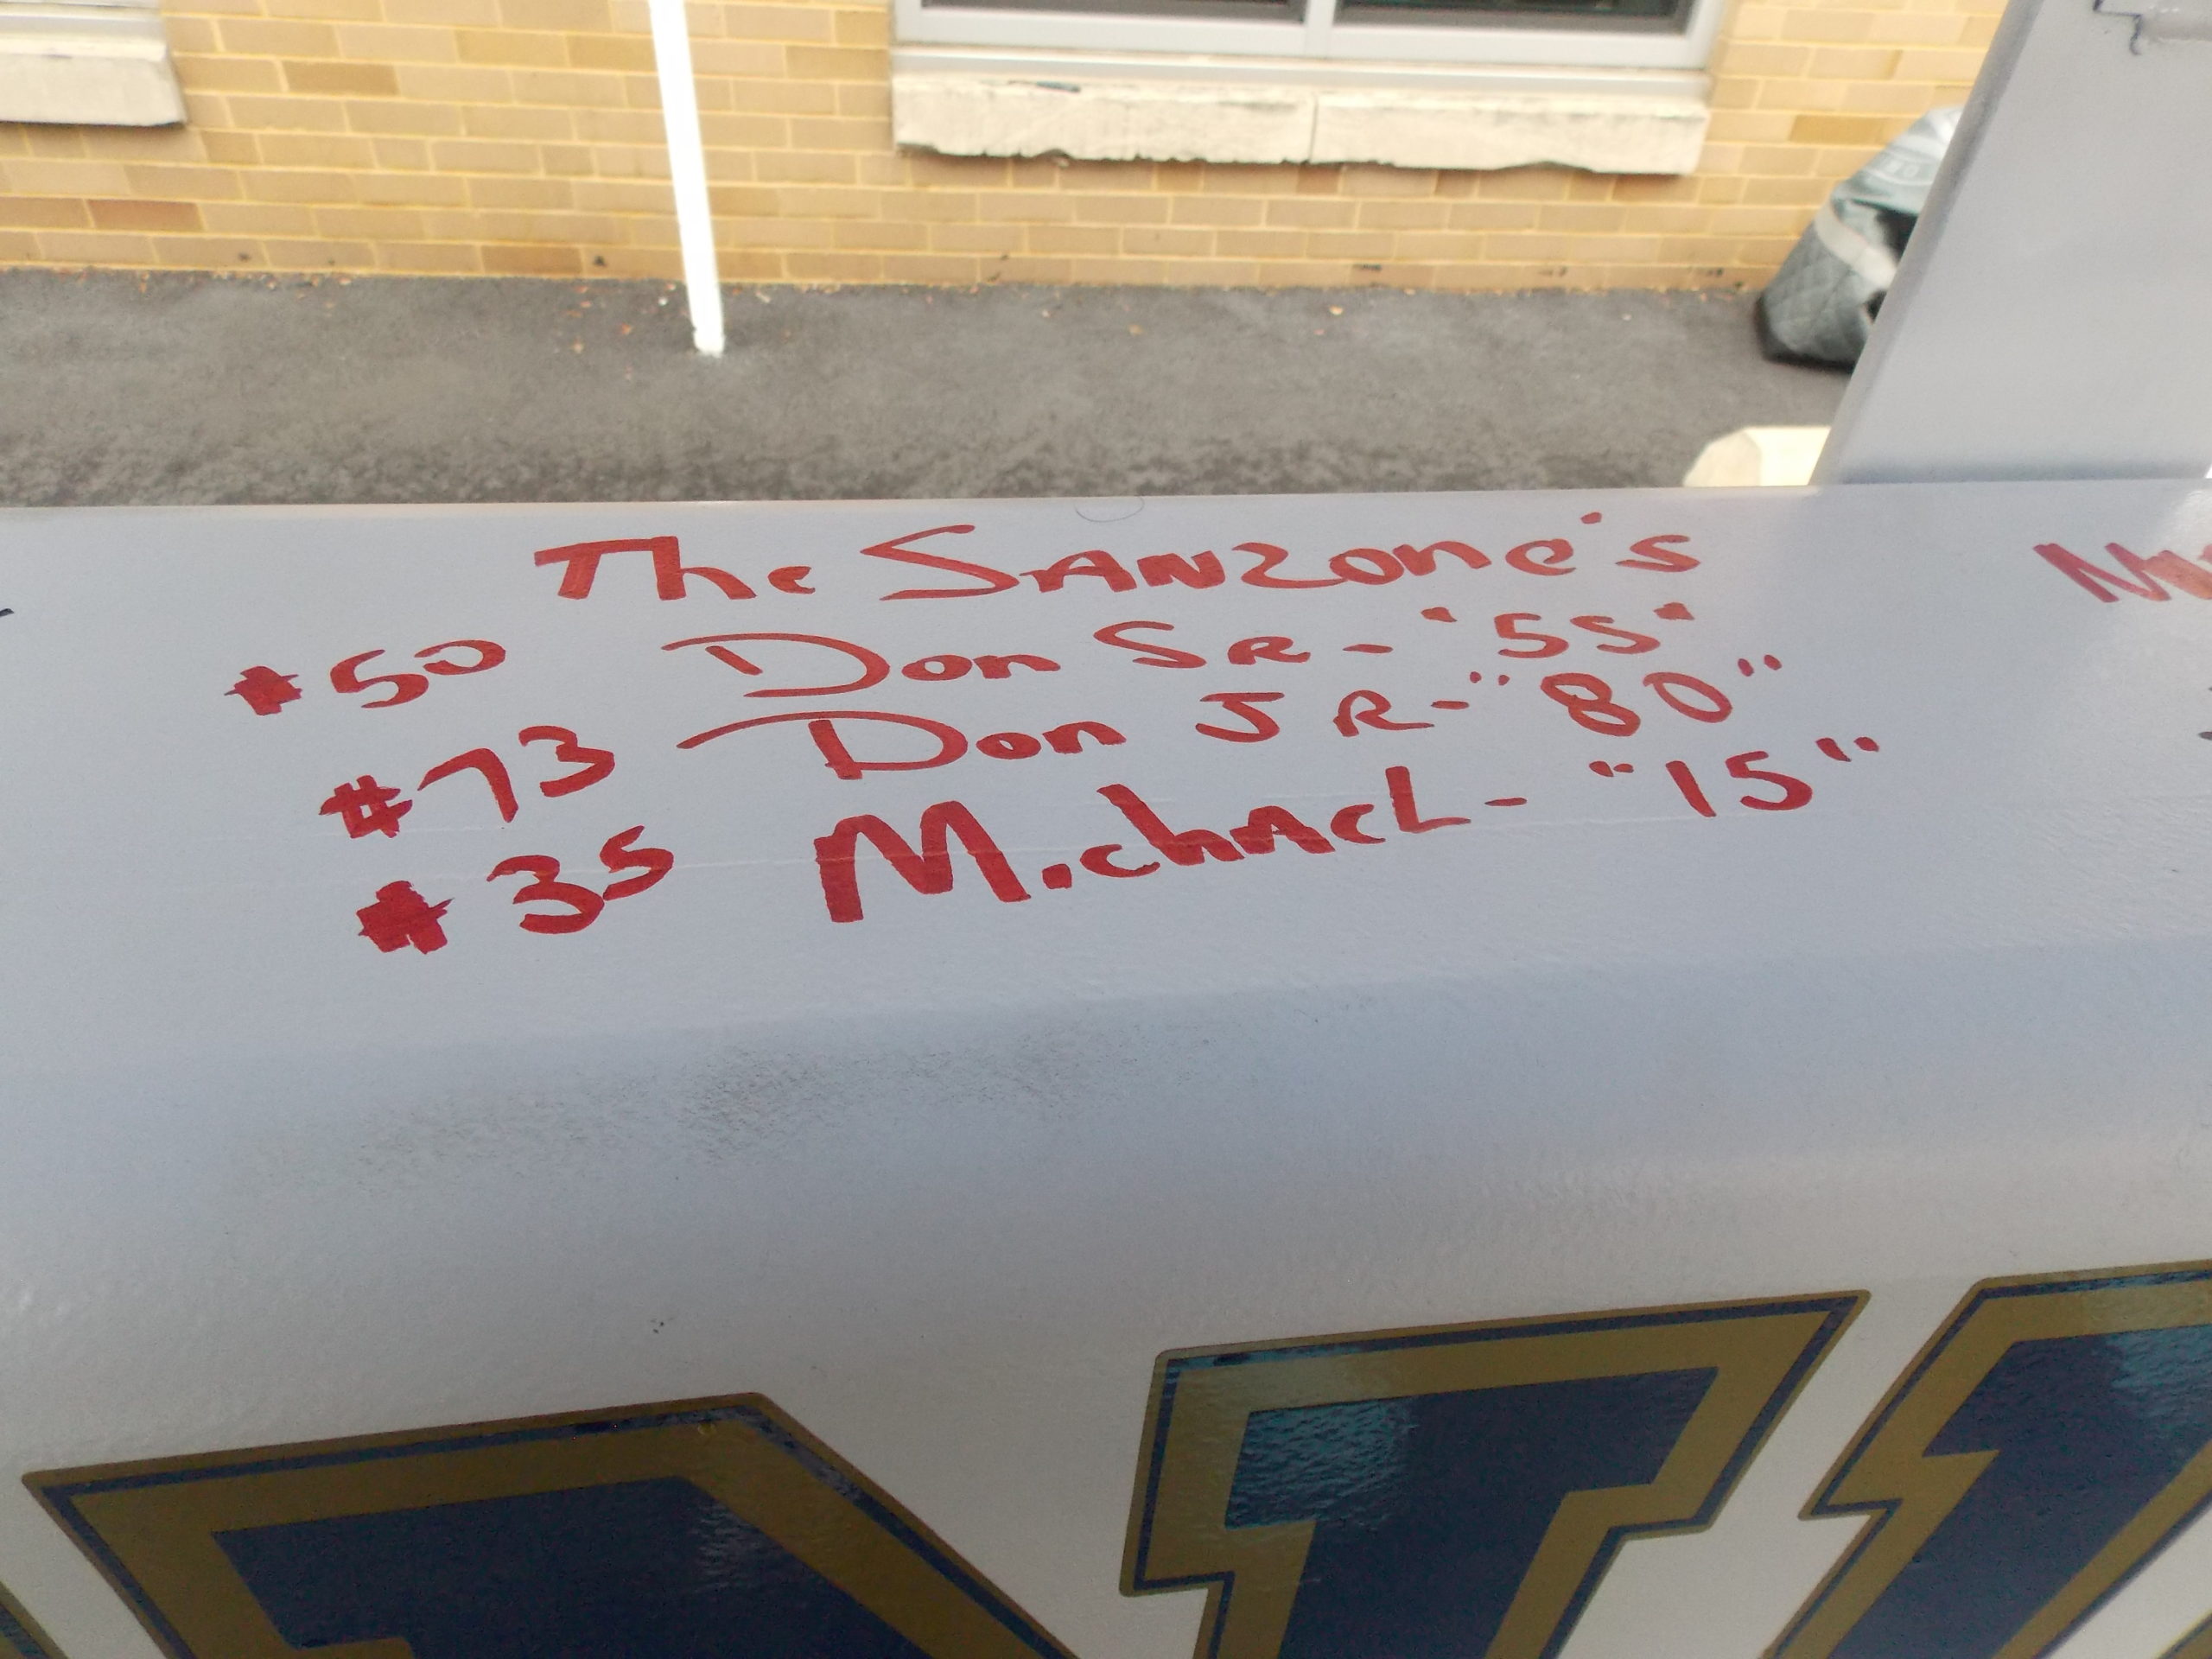 The SANZone's
#50 Don SR - "55"
#73 Don JR - "80"
#35 MichaeL - "15"